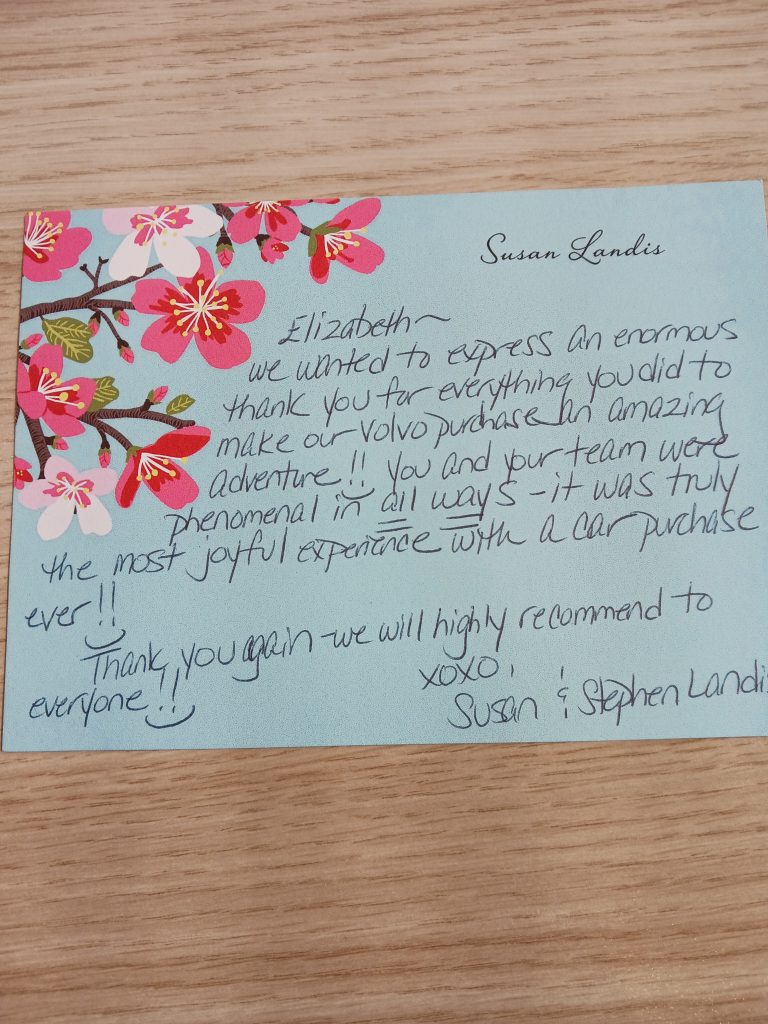 Susan Landis
Elizabeth~
we wanted to express an enormous
thank you for everything you did to
make our Volvo purchase an amazing
adventure!! You and your team were
phenomenal in all ways - it was truly
the most joyful experience with a car purchase
ever!!
Thank you again - we will highly recommend to
everyone!!
xoxo,
Susan & Stephen Landis